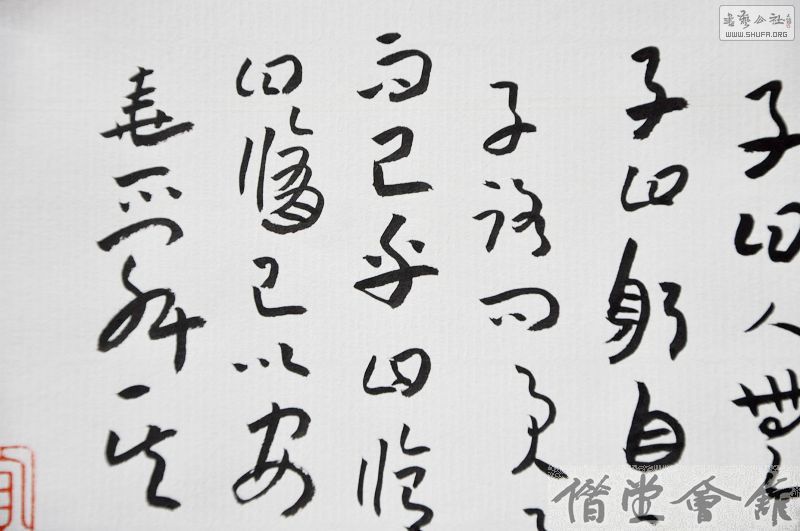 子曰人無
子曰躬自
子路问君
而已乎曰脩
曰脩己以安
堯舜其
書藝公社
WWW.SHUFA.ORG
堂會館